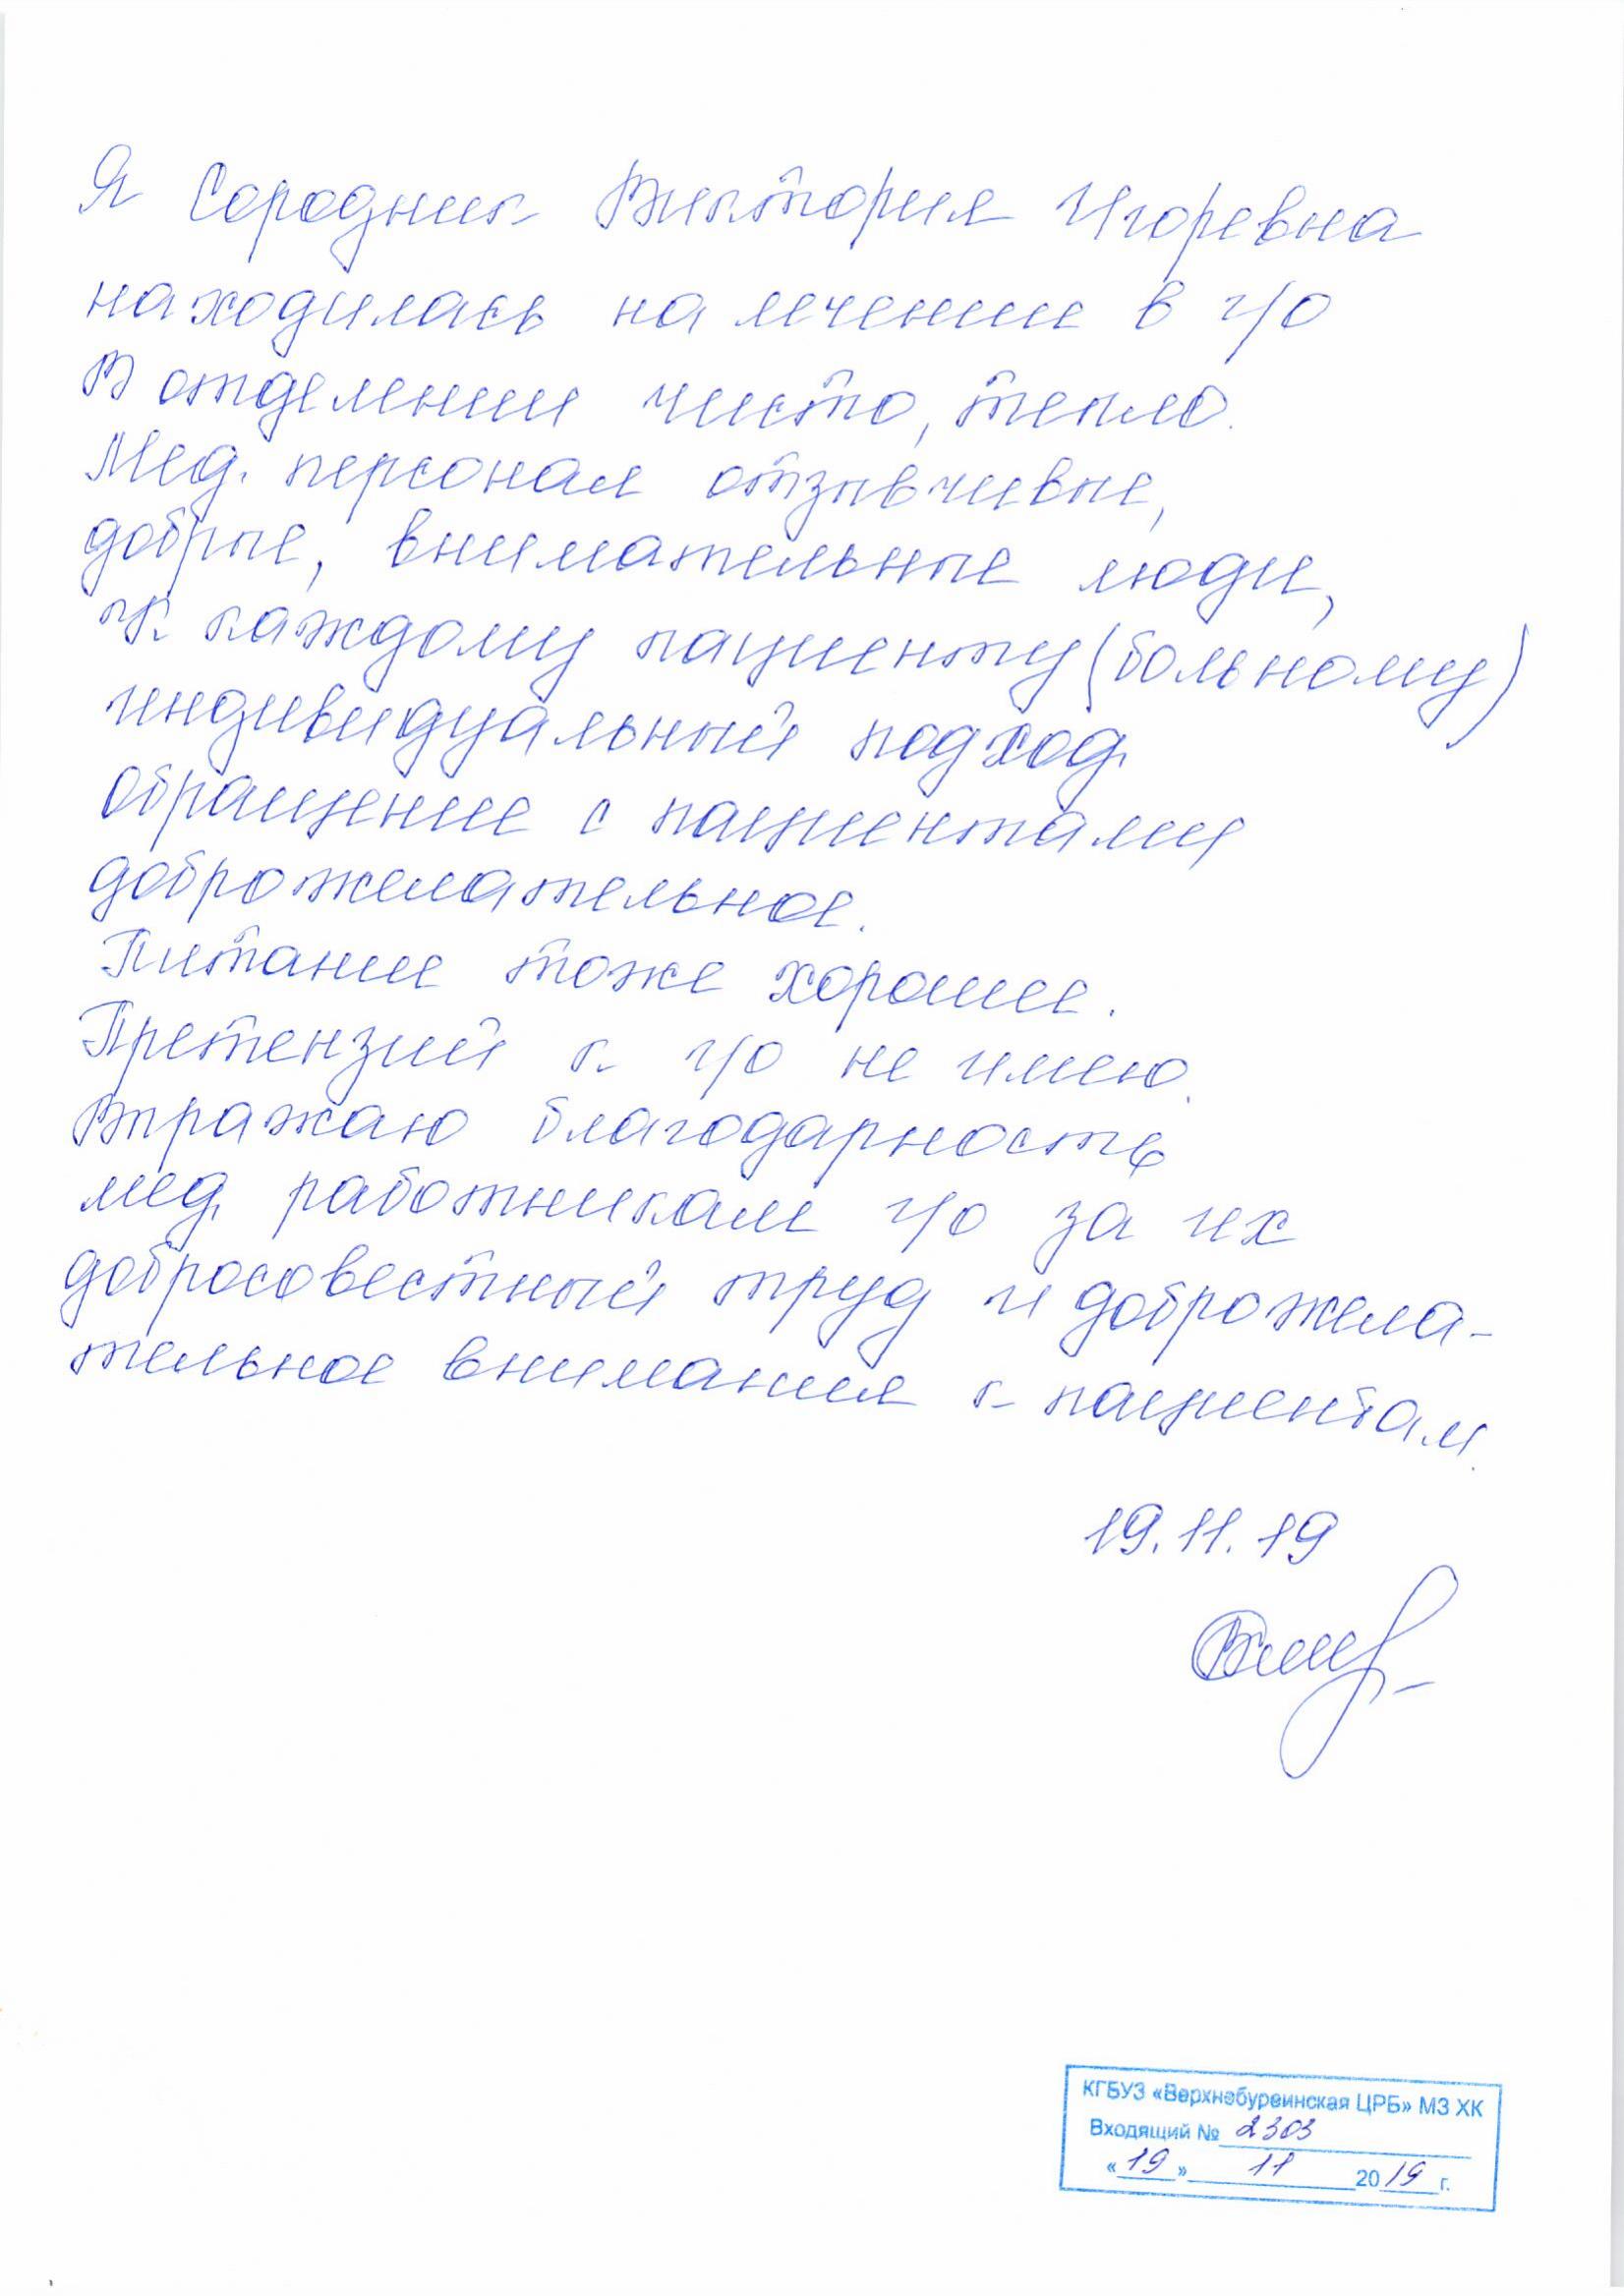 Я Сородник Виктория Игоревна
находилась на лечение в г/о
В отделении чисто, тепло.
Мед. персонал отзывчивые,
добрые, внимательные люди,
к каждому пациенту (больному)
индивидуальный подход.
Обращение с пациентами
доброжелательное.
Питание тоже хорошее.
Претензий к г/о не имею.
Выражаю благодарность
мед. работникам г/о за их
добросовестный труд и доброжела-
тельное внимания к пациентам.
19.11.19
КГБУЗ «Верхнебуреинская ЦРБ» МЗ ХК
Входящий № 2303
«19» 11 2019 г.